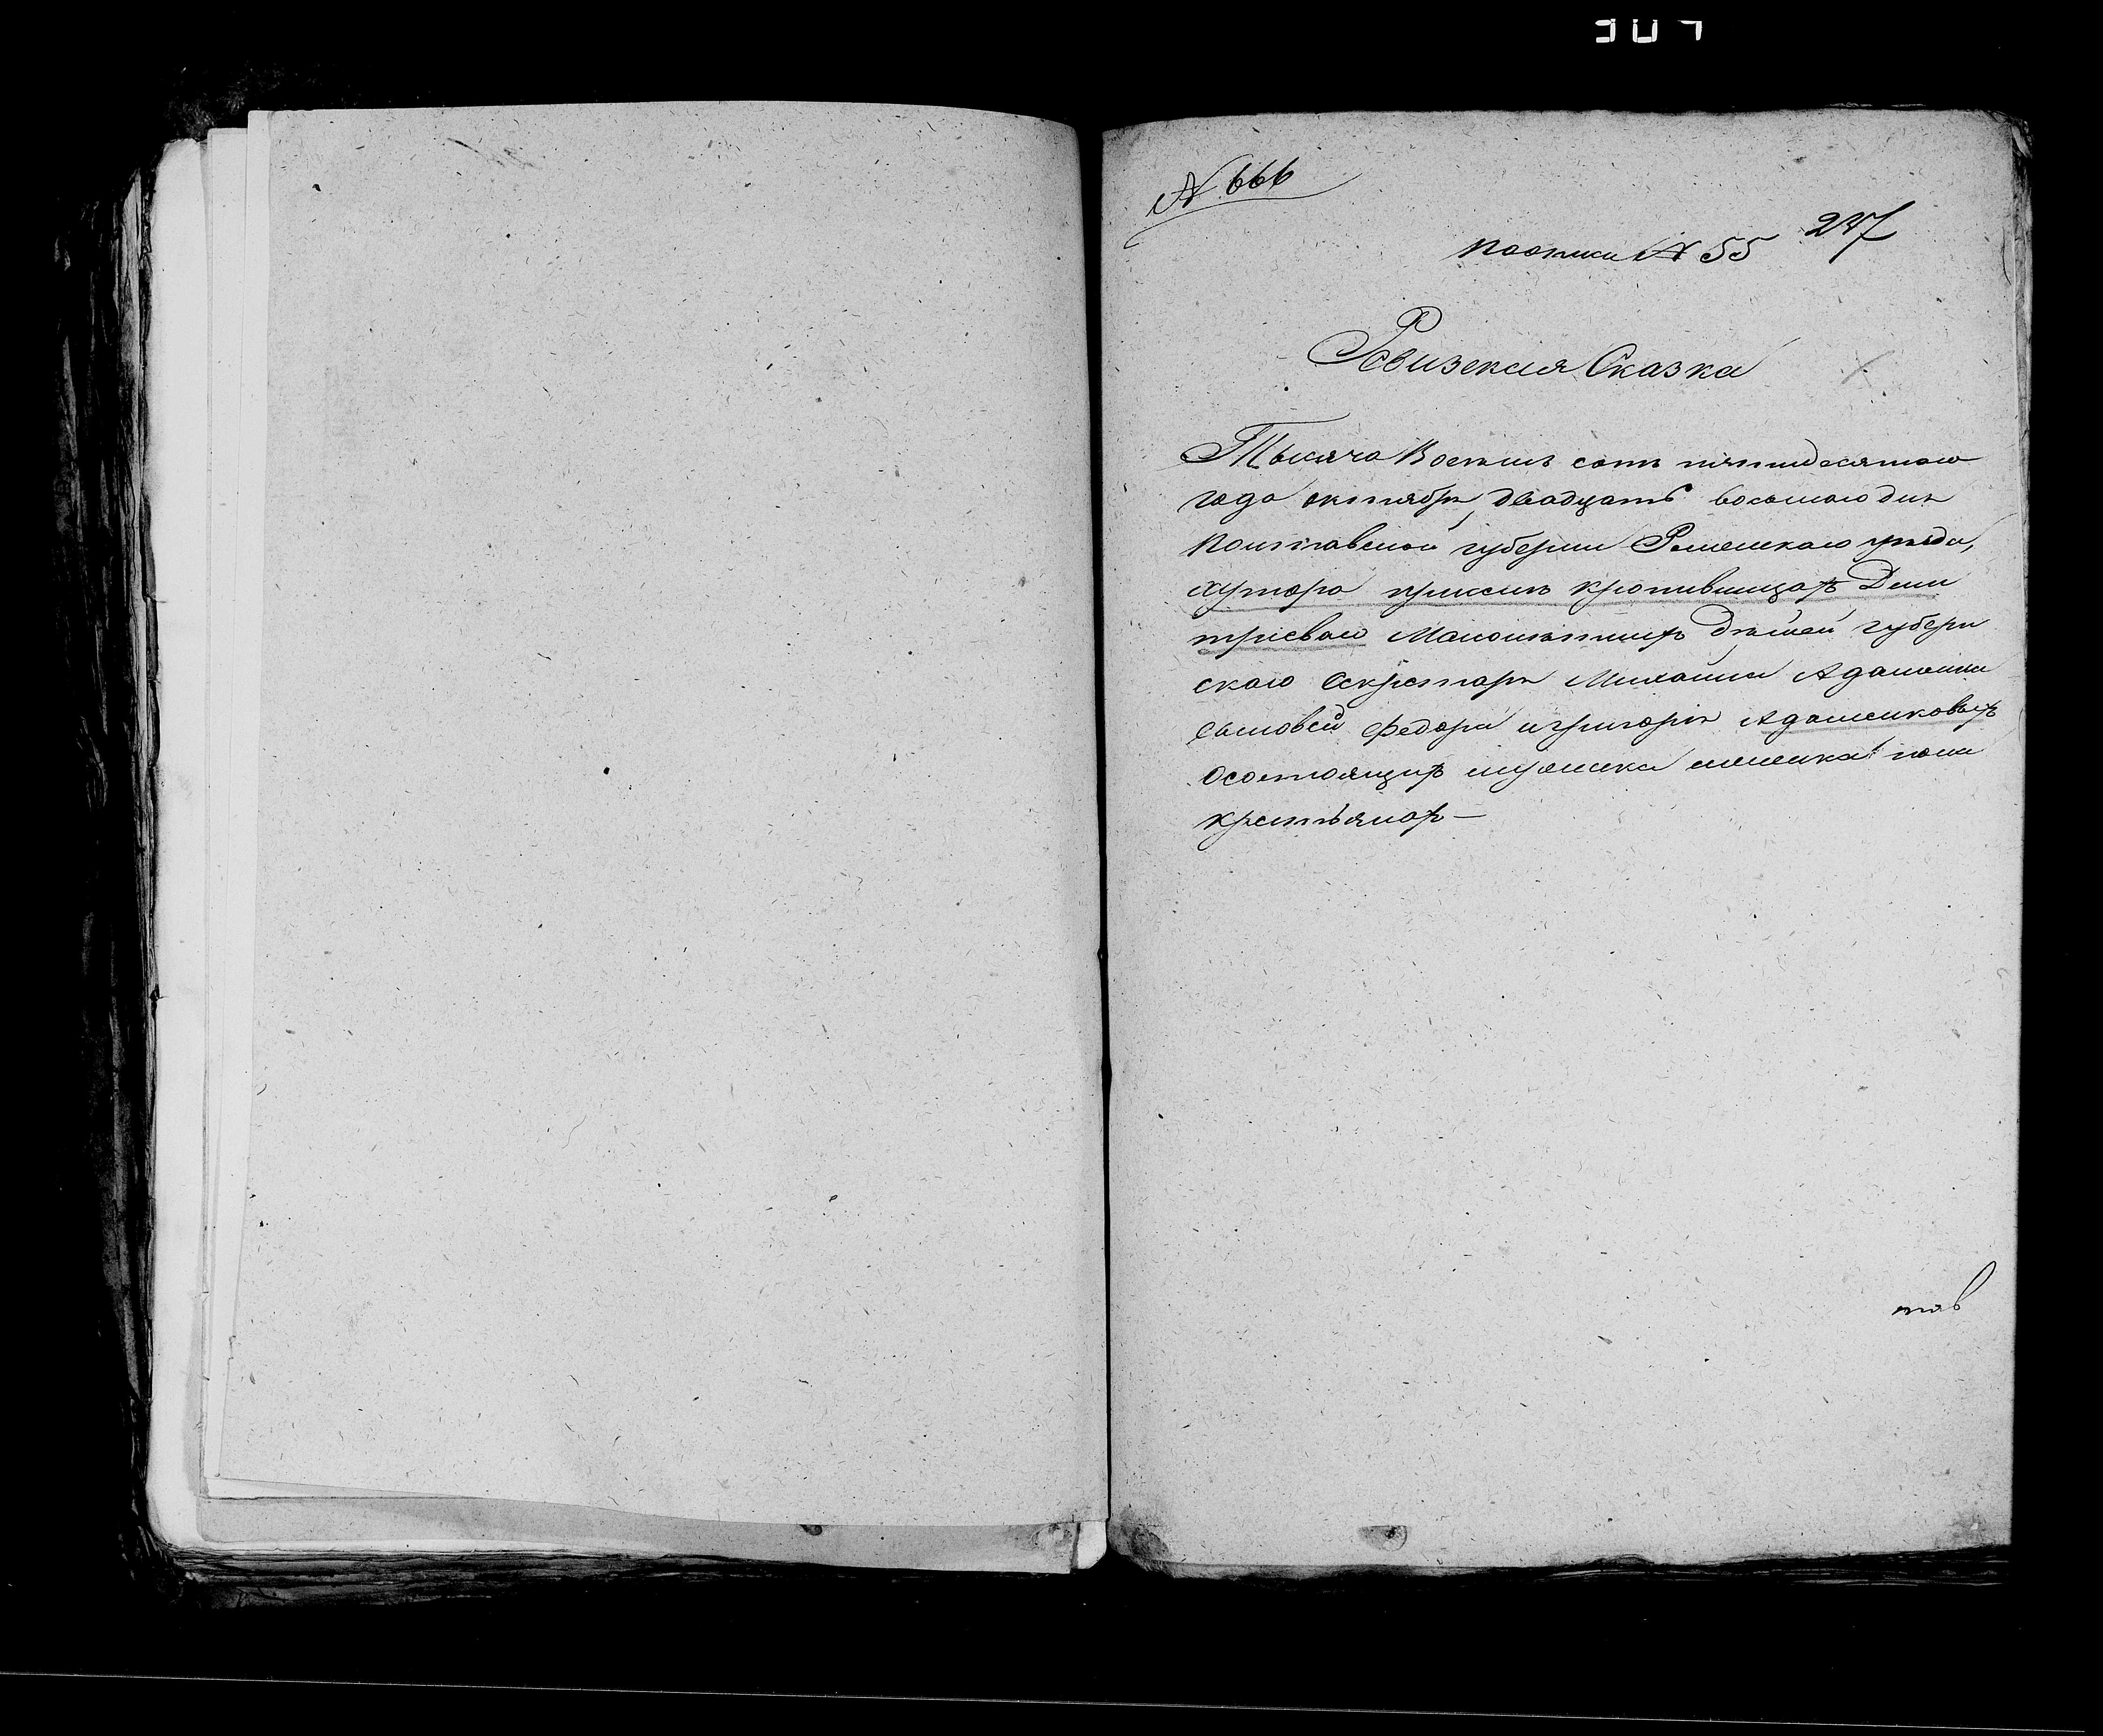 307
№ 666
247
поописи № 55
Ревизская Сказка
Тысяча Восемь сотъ пятидесятого
года октября двадцать восьмого дня
Полтавской губернии Роменского уезда,
хутора кропивницахъ Дми
триевки Малолетнихъ детей губерн
ского Секретаря Михаила Адаменка
сыновей федора игригория Адаменковыхъ
Осостоящихъ мужеска иженска пола
крестьянах —